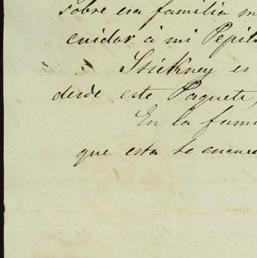 sobre esa familia
cuidar á mi Pepit
Stickney es
desde este Paquete,
En la fami
que esta te